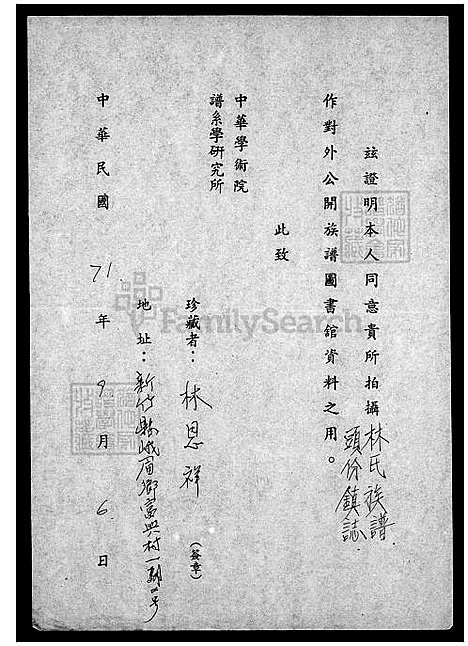 茲證明本人同意貴所拍攝林氏族譜
頭份鎮誌
作對外公開族譜圖書舘資料之用。
此致
中華學術院
譜系學研究所
珍藏者：林恩祥（簽章）
地址：新竹縣峨眉鄉富興村一鄰號
中華民國71.年9月6日
FamilySearch